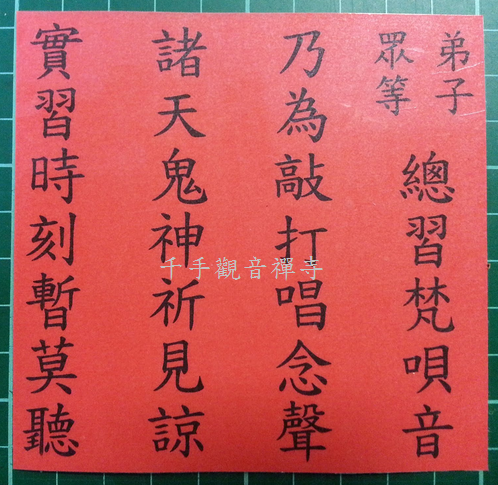 弟子眾等 總習梵唄音
乃為敲打唱念聲
諸天鬼神祈見諒
實習時刻暫莫聽
千手觀音禪寺